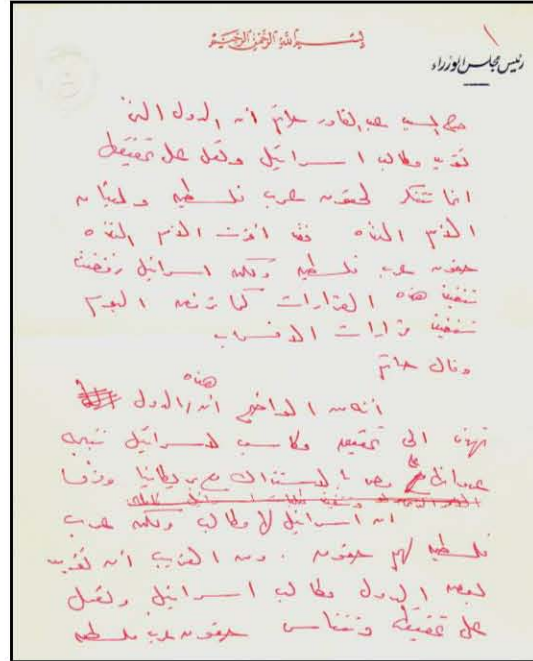 بسم الله الرحمن الرحيم
١
رئيس مجلس الوزراء
صرح السيد عبد القادر حاتم أن الدول التى
تؤيد مطالب اسرائيل وتعمل على تحقيقها
انما تتنكر لحقوق عرب فلسطين ولميثاق
الأمم المتحدة فقد أقرت الأمم المتحدة
حقوق عرب فلسطين ولكن اسرائيل رفضت
تنفيذ هذه القرارات كما ترفض اليوم
تنفيذ قرارات الانسحاب
وقال حاتم
هذه
أنه من الواضح أن الدول
تهدف الى تحقيق مكاسب لاسرائيل نتيجة
عدوانها بالاشتراك مع بريطانيا وفرنسا
ان اسرائيل لا مطالب ولكن عرب
فلسطين لهم حقوق . ومن الغريب أن تؤيد
بعض الدول مطالب اسرائيل وتعمل
على تحقيقها وتتناسى حقوق عرب فلسطين